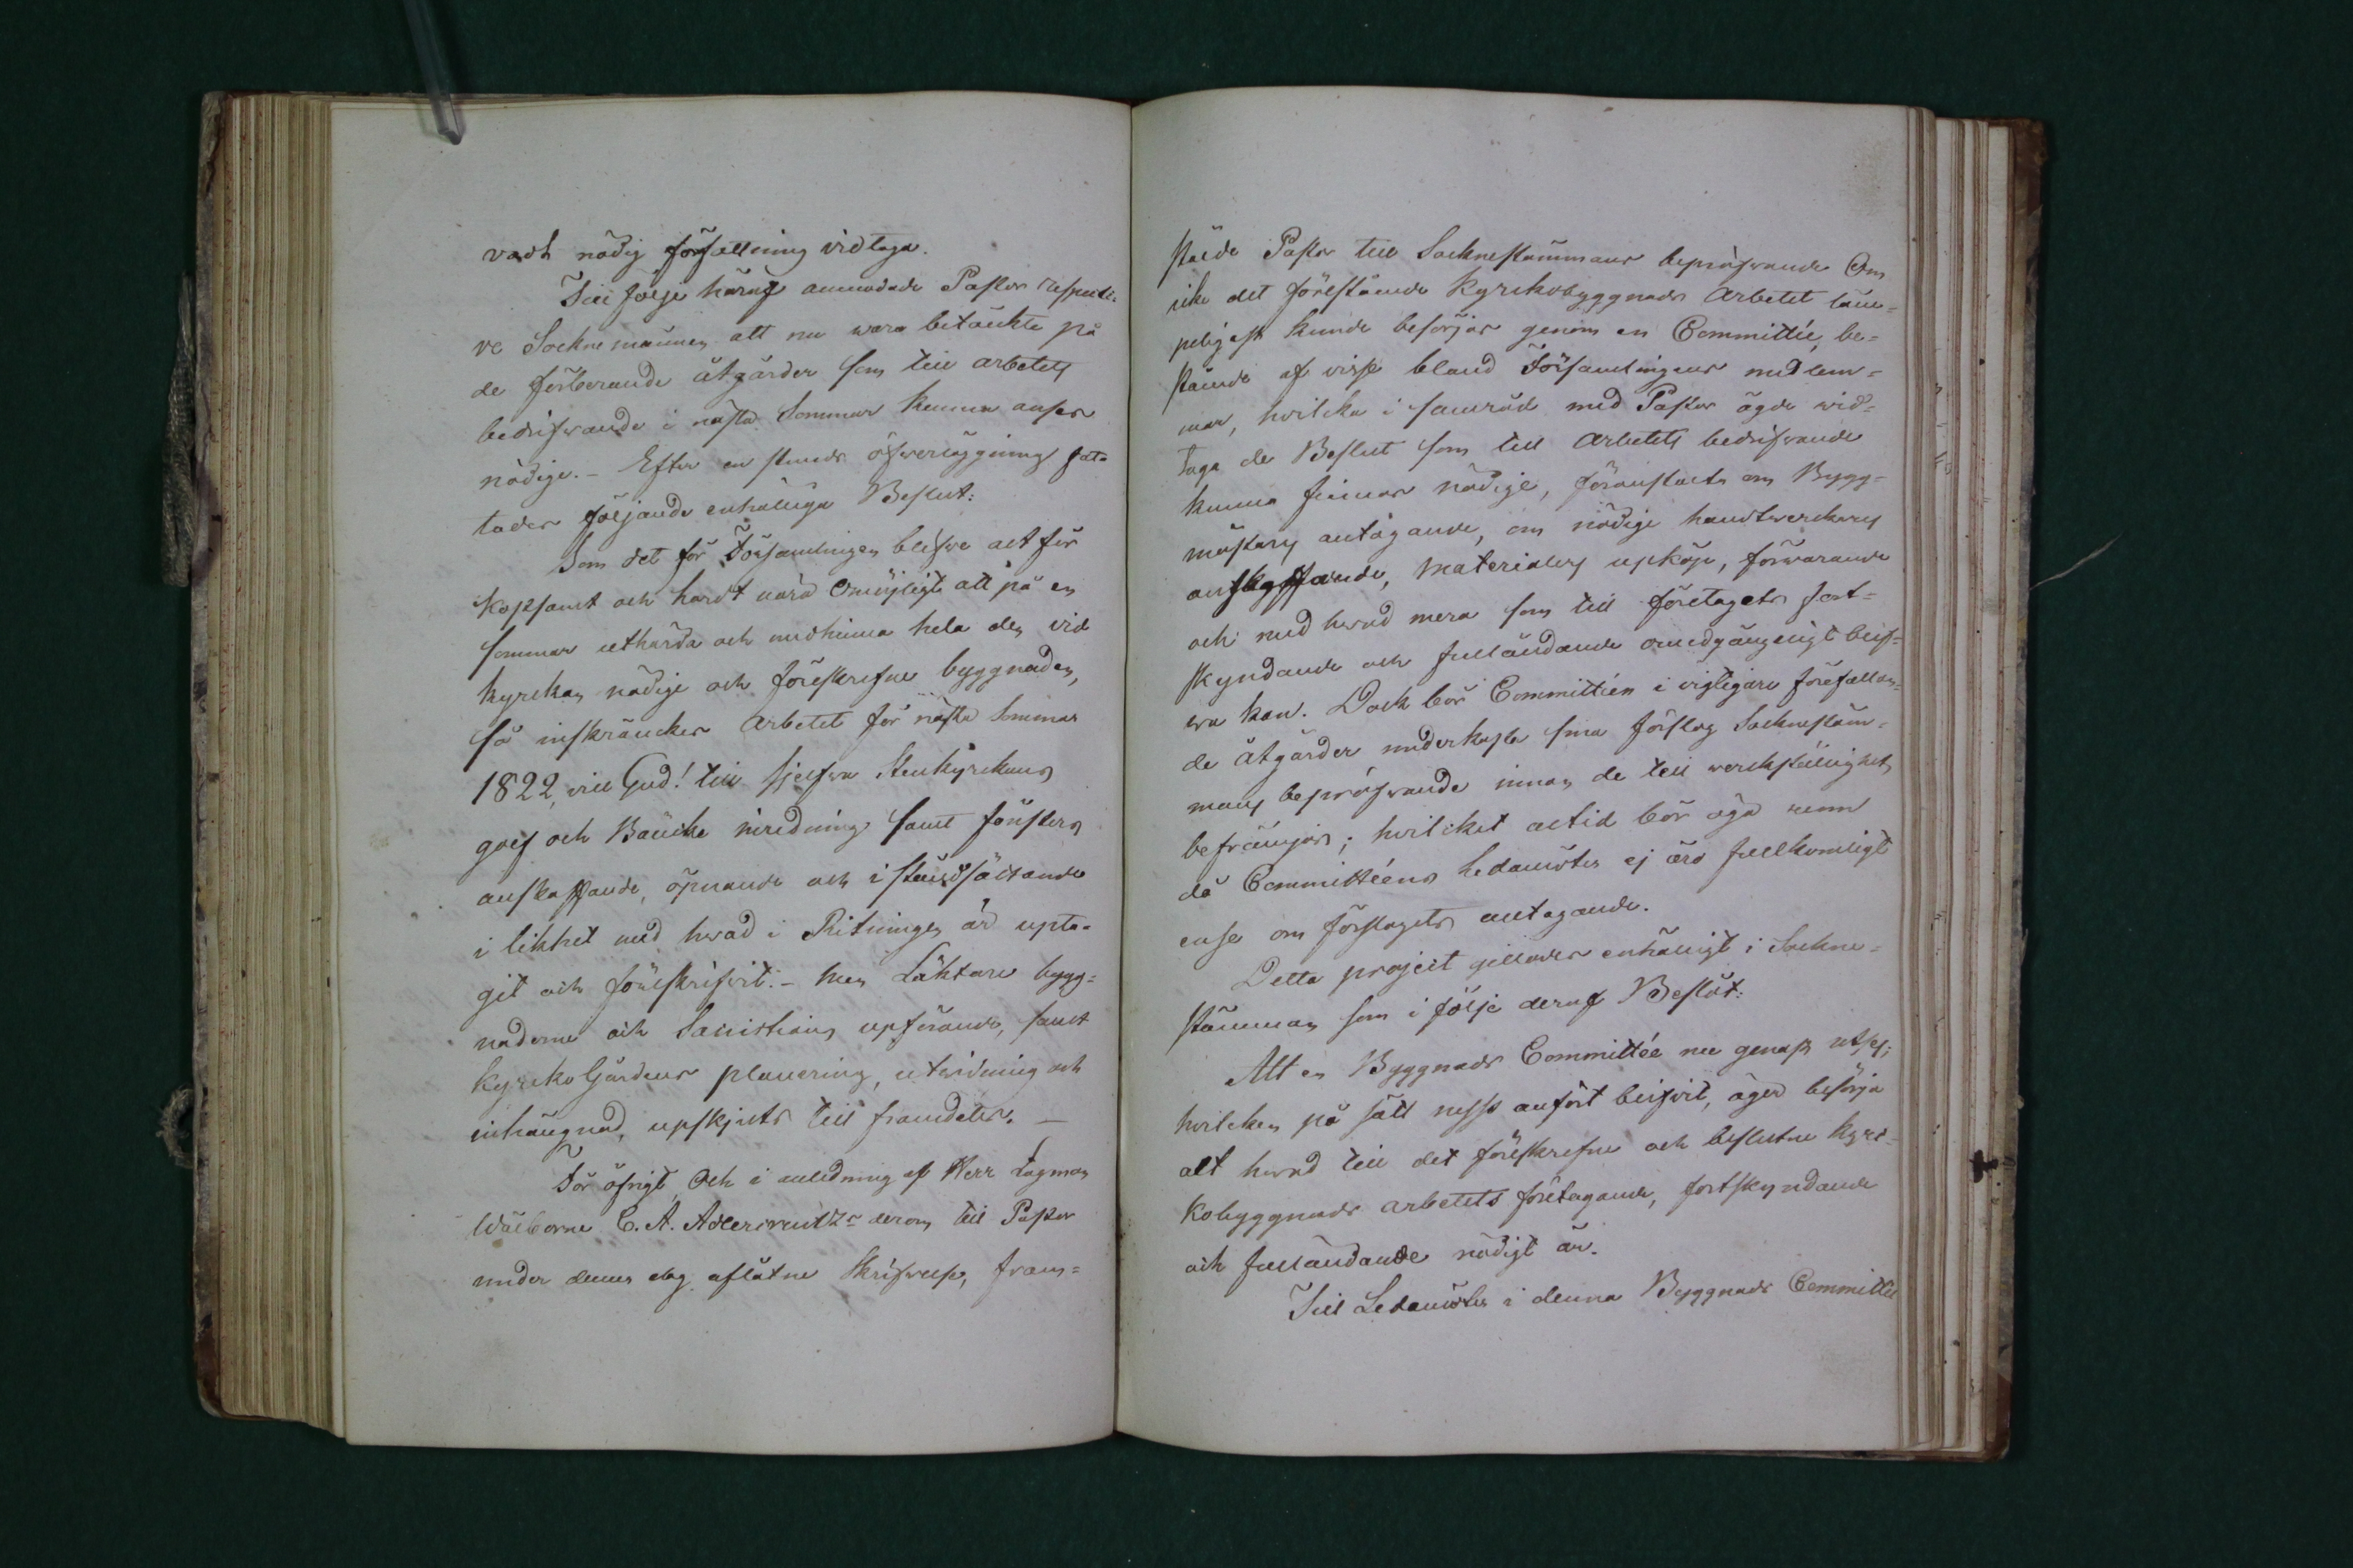 vadt nödig författning vidtaga.
Till följe häraf anmodade Pastor respecti-
ve Socknemännen att nu wara betänkte på
de förberande åtgärder som till arbetets
bedrifwande i nästa Sommar kunna anses
nödige. – Efter en stunds öfwerläggning fat-
tades följande enhällige Beslut:
Som det för Församlingen blefwe alt för
kostsamt och hardt nära Omöjligt att på en
sommar uthärda och medhinna hela den vid
kyrckan nödige och föreskrefne byggnaden,
så inskräncker arbetet för nästa Sommar
1822, vill Gud! till sjelfva Stenkyrckans
golf och Bäncke inredning samt fönsters
anskaffande, öpnande och i ståndsättande
i likhet med hwad i Ritningen är upta-
git och föreskrifvit. – Men Läktare bygg=
naderne och Sacristians upförande, samt
kyrcko Gårdens planering, utvidning och
inhängnad, upskjuts till framdeles. –
För öfrigt, Och i anledning af Herr Lagman
Wälborne C. A. Adlercreutz derom till Pastor
under denna dag aflåtne Skrifwelse, fram=
stälde Pastor till Socknestämmans bepröfwande Om
icke det förestående Kyrckobyggnads Arbetet läm=
peligast kunde besörjas genom en Committée, be=
stående af visse bland Församlingens medlem=
mar, hvilcka i samråd med Pastor ägde wid=
taga de Beslut som till Arbetets bedrifvande
kunna finnas nödige, föranstalta om Bygg=
mästares antagande, om nödige handtwerckares
anskaffande, Materialers upköp, förwarande
och med hwad mera som till företagets fort=
skyndande och fulländande omedgängeligt blif=
wa kan. Dock bör Committéen i vigtigare förefallan=
de åtgärder underkasta sina förslag Socknestäm=
mans bepröfwande innan de till werckställighet
befrämjas; hvilcket altid bör äga rum
då Committéens Ledamöter ej äro fullkomligt
ense om förslagets antagande.
Detta project gillades enhälligt i Sockne=
stämman som i följe deraf Beslöt:
Att en Byggnads Committée nu genast utses;
hvilcken på sätt nyss anfört blifvit, äger besörja
alt hwad till det föreskrefne och beslutne kyrc=
kobyggnads arbetets företagande, fortskyndande
och fulländande nödigt är.
Till Ledamöter i denna Byggnads Committée